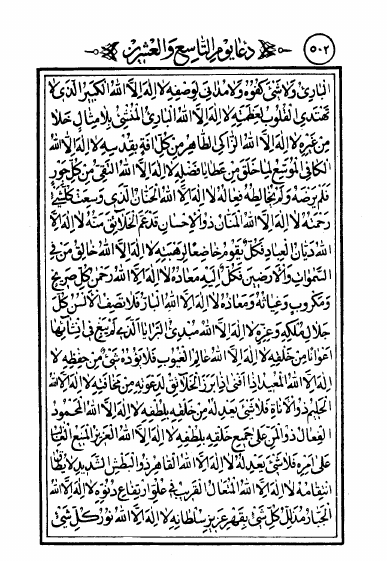 دعا يوم التاسع والعشر
٥٠٢
البارئ ولا شئ كفوه ولا مداني لوصفه لا اله الا الله الكبير الذى لا
تهتدى القلوب لعظمته لا اله الا الله البارئ المنشئ بلا مثال خلا
من غيره لا اله الا الله الزاكى الطاهر من كل افة بقدسه لا اله الا الله
الكافى الموسع لما خلق من عطايا فضله لا اله الا الله النقى من كل جور
فلم يرضه ولم يخالطه فعاله لا اله الا الله الحنان الذى وسعت كل شئ
رحمته لا اله الا الله المنان ذو الاحسان قد عم الخلائق منه لا اله الا
الله ديان العباد فكل يقوم خاضعا لرهبته لا اله الا الله خالق من فى
السموات والارضين فكل اليه معاده لا اله الا الله رحمن كل صريخ
ومكروب وغياثه ومعاده لا اله الا الله البار فلا تصف الالسن كل
جلال ملكه وعزه لا اله الا الله مبدئ البرايا الذى لم يبغ فى انشائها
اعوانا من خلقه لا اله الا الله عالم الغيوب فلا يؤده شئ من حفظه لا
اله الا الله المعيد اذا افنى اذا برز الخلائق لدعوته من مخافته لا اله الا الله
الحليم ذو الاناة فلا شئ يعدله من خلقه بلطفه لا اله الا الله المحمود
الفعال ذو المن على جميع خلقه بلطفه لا اله الا الله العزيز المنيع الغالب
على امره فلا شئ يعدله لا اله الا الله القاهر ذو البطش الشديد لا يطاق
انتقامه لا اله الا الله المتعال القريب فى علو ارتفاع دنوه لا اله الا الله
الجبار مذلل كل شئ بقهر عزيز سلطانه لا اله الا الله نور كل شئ